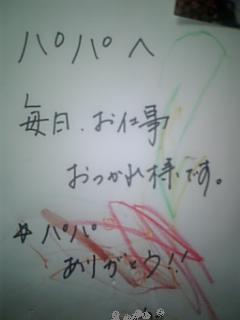 パパへ
毎日、お仕事
おつかれ様です。
パパ
ありがとウ!!